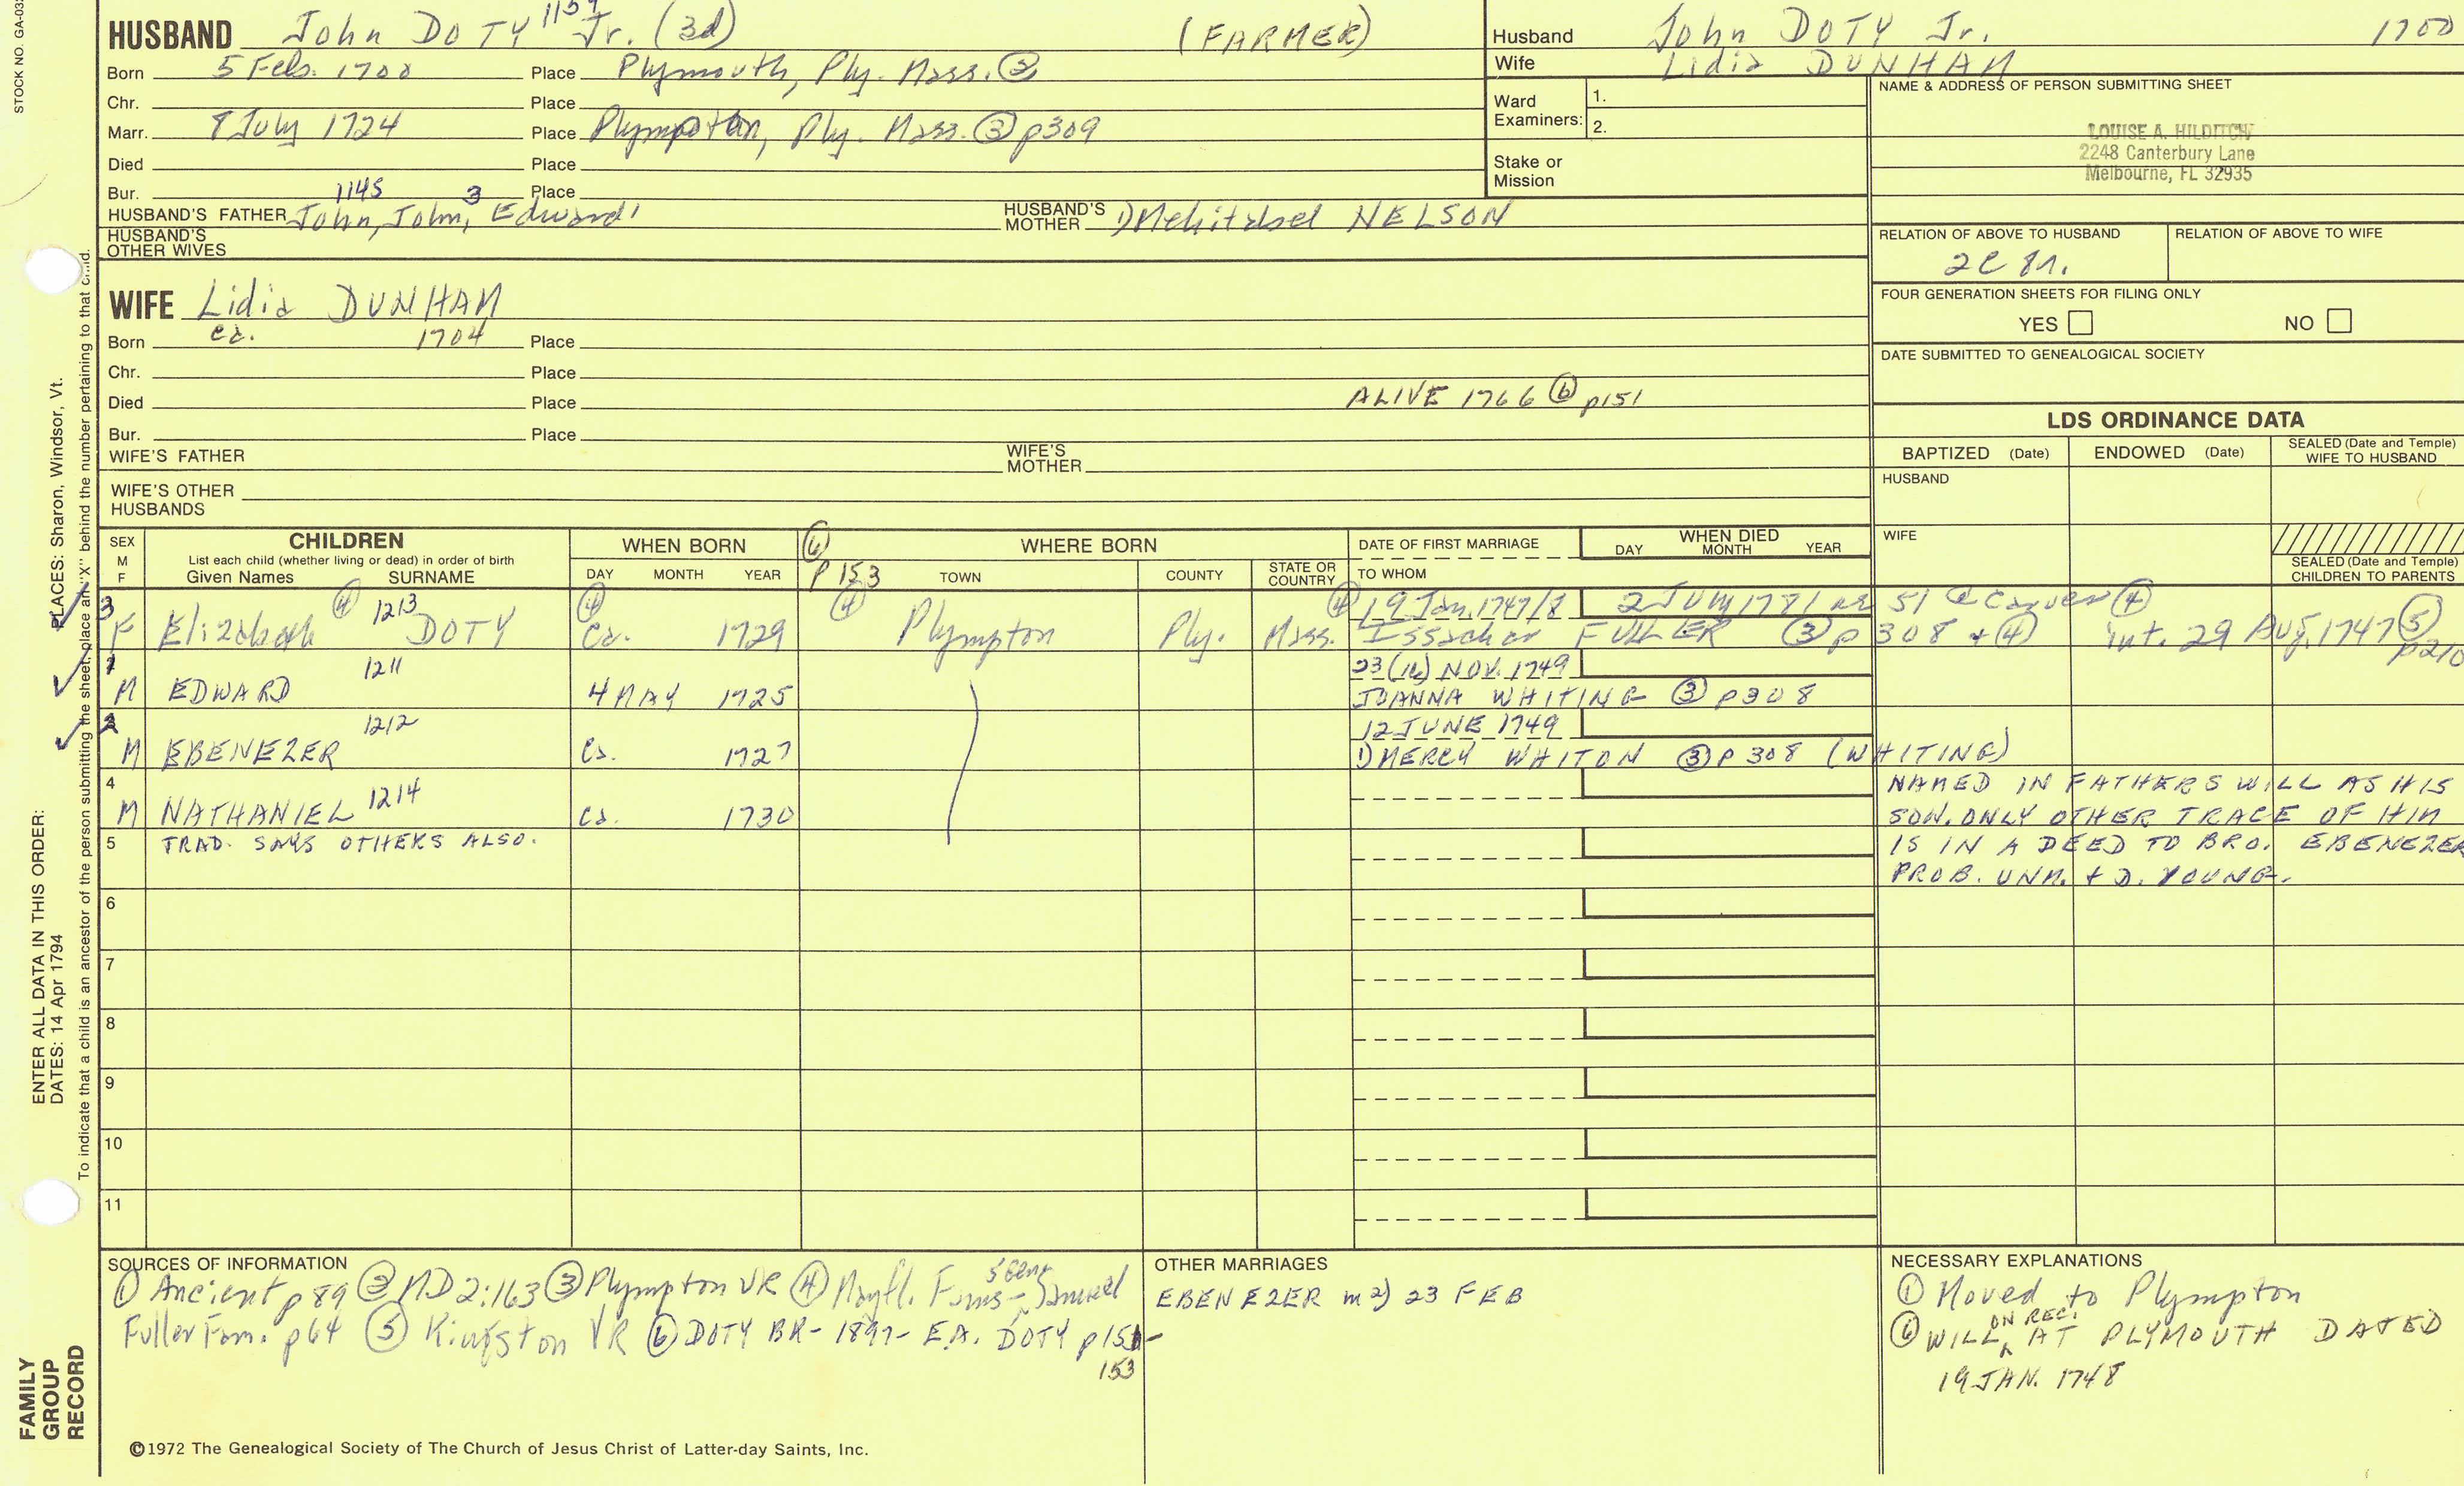 STOCK NO. GA-03
HUSBAND John DOTY 1159 Jr. (3d) (FARMER)
Born 5 Feb. 1700 Place Plymouth, Ply. Mass. ②
Chr. Place
Marr. 8 July 1724 Place Plympton, Ply. Mass. ③ p309
Died Place
Bur. Place
HUSBAND'S FATHER John, John, Edward1 1145 3
HUSBAND'S MOTHER 1) Mehitabel NELSON
HUSBAND'S OTHER WIVES
Husband John DOTY Jr. 1700
Wife Lidia DUNHAM
Ward Examiners: 1.
2.
Stake or Mission
NAME & ADDRESS OF PERSON SUBMITTING SHEET
LOUISE A. HILDITCH
2248 Canterbury Lane
Melbourne, FL 32935
RELATION OF ABOVE TO HUSBAND RELATION OF ABOVE TO WIFE
FOUR GENERATION SHEETS FOR FILING ONLY
YES NO
DATE SUBMITTED TO GENEALOGICAL SOCIETY
WIFE Lidia DUNHAM
Born ca. 1704 Place
Chr. Place
Died Place ALIVE 1766 ⑥ p151
Bur. Place
WIFE'S FATHER WIFE'S MOTHER
WIFE'S OTHER HUSBANDS
LDS ORDINANCE DATA
BAPTIZED (Date) ENDOWED (Date) SEALED (Date and Temple) WIFE TO HUSBAND
HUSBAND
WIFE
SEALED (Date and Temple) CHILDREN TO PARENTS
SEX M F
CHILDREN
List each child (whether living or dead) in order of birth
Given Names SURNAME
WHEN BORN
DAY MONTH YEAR
⑥ p 153
WHERE BORN
TOWN COUNTY STATE OR COUNTRY
DATE OF FIRST MARRIAGE
TO WHOM
WHEN DIED
DAY MONTH YEAR
3 ④ 1213 ④ ④ ④ 19 Jan. 1747/8 2 July 1781 ae 51 @ Carver ④
F Elizabeth DOTY Ca. 1729 Plympton Ply. Mass. Issachar FULLER ③ p 308 + ④ int. 29 Aug. 1747 ⑤ p210
1 1211 23 (16) NOV. 1749
M EDWARD 4 MAY 1725 JOANNA WHITING ③ p308
2 1212 12 JUNE 1749
M EBENEZER Ca. 1727 1) MERCY WHITON ③ p 308 (WHITING)
4 1214
M NATHANIEL Ca. 1730
NAMED IN FATHERS WILL AS HIS
SON. ONLY OTHER TRACE OF HIM
IS IN A DEED TO BRO. EBENEZER
PROB. UNM. + D. YOUNG.
5 TRAD. SAYS OTHERS ALSO.
6
7
8
9
10
11
SOURCES OF INFORMATION
① Ancient p 89 ② MD 2:163 ③ Plympton VR ④ Mayfl. Fams 5 Gens - Samuel
Fuller Fam. p64 ⑤ Kingston VR ⑥ DOTY BK - 1897 - E.A. DOTY p151-
153
OTHER MARRIAGES
EBENEZER m 2) 23 FEB
NECESSARY EXPLANATIONS
① Moved to Plympton
⑥ WILL ON REC. AT PLYMOUTH DATED
19 JAN. 1748
©1972 The Genealogical Society of The Church of Jesus Christ of Latter-day Saints, Inc.
FAMILY
GROUP
RECORD
ENTER ALL DATA IN THIS ORDER:
DATES: 14 Apr 1794
PLACES: Sharon, Windsor, Vt.
To indicate that a child is an ancestor of the person submitting the sheet, place an "X" behind the number pertaining to that child.